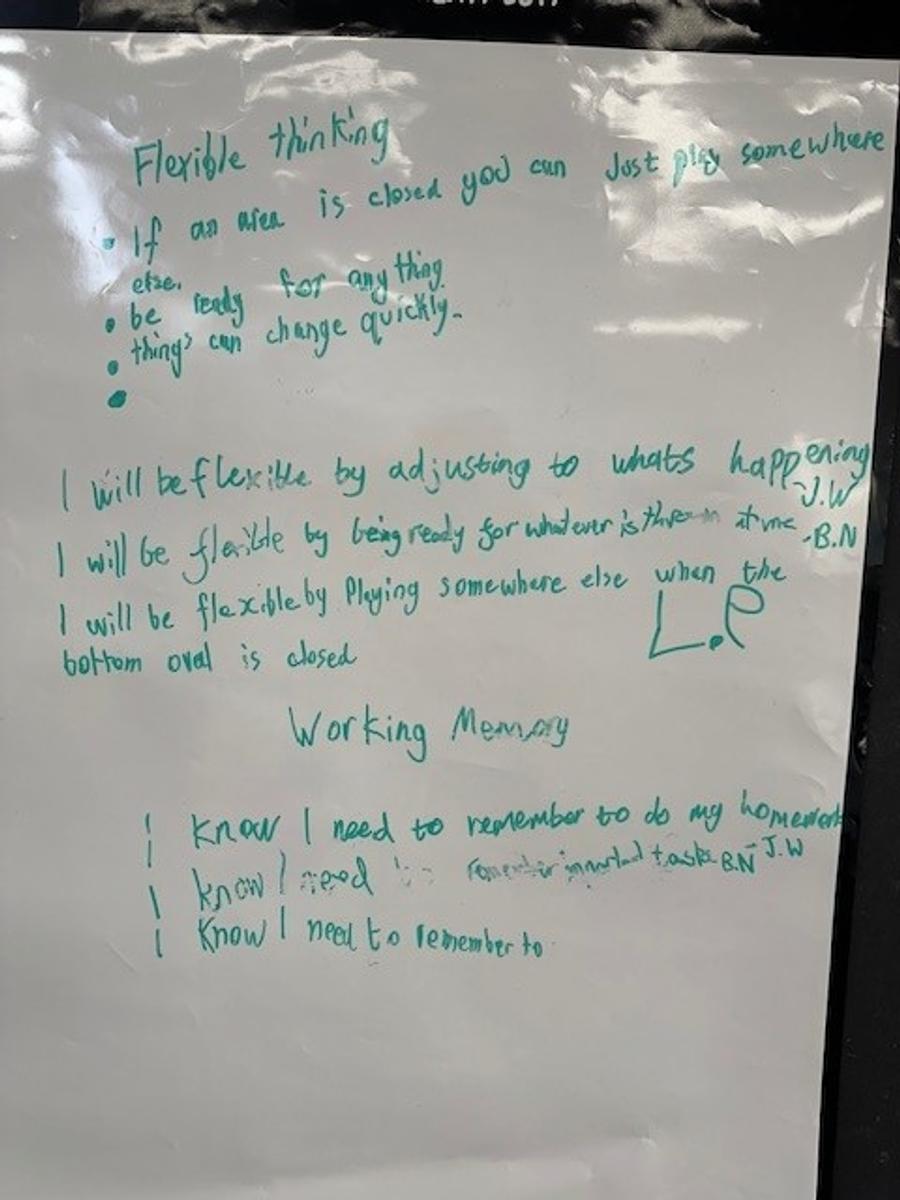 Flexible thinking
• If an area is closed you can Just play somewhere
else.
• be ready for any thing.
• things can change quickly.
•
I will be flexible by adjusting to whats happening
-J.W
I will be flexible by being ready for whatever is thrown at me -B.N
I will be flexible by Playing somewhere else when the
bottom oval is closed L.P
Working Memory
I know I need to remember to do my homework
J.W
I know I need to remember important tasks B.N
I know I need to remember to